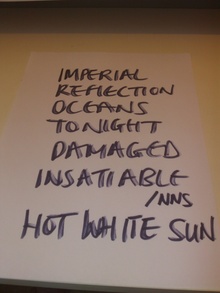 IMPERIAL
REFLECTION
OCEANS
TONIGHT
DAMAGED
INSATIABLE
/NNS
HOT WHITE SUN